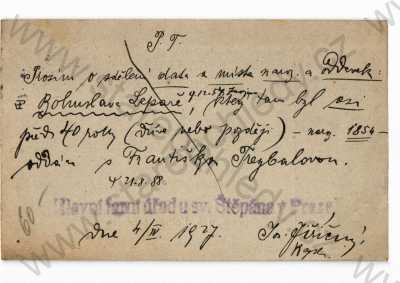 P. T.
Prosím o sdělení data a místa naroz. a oddavek:
Bohuslava Lepaře, který tam byl asi
před 40 roky (dříve nebo později) – naroz. 1854 –
oddán s Františkou Freybalovou.
† 21.8.88.
Hlavní farní úřad u sv. Štěpána v Praze
60
dne 4/III. 1927
Jos. Jiřičný,